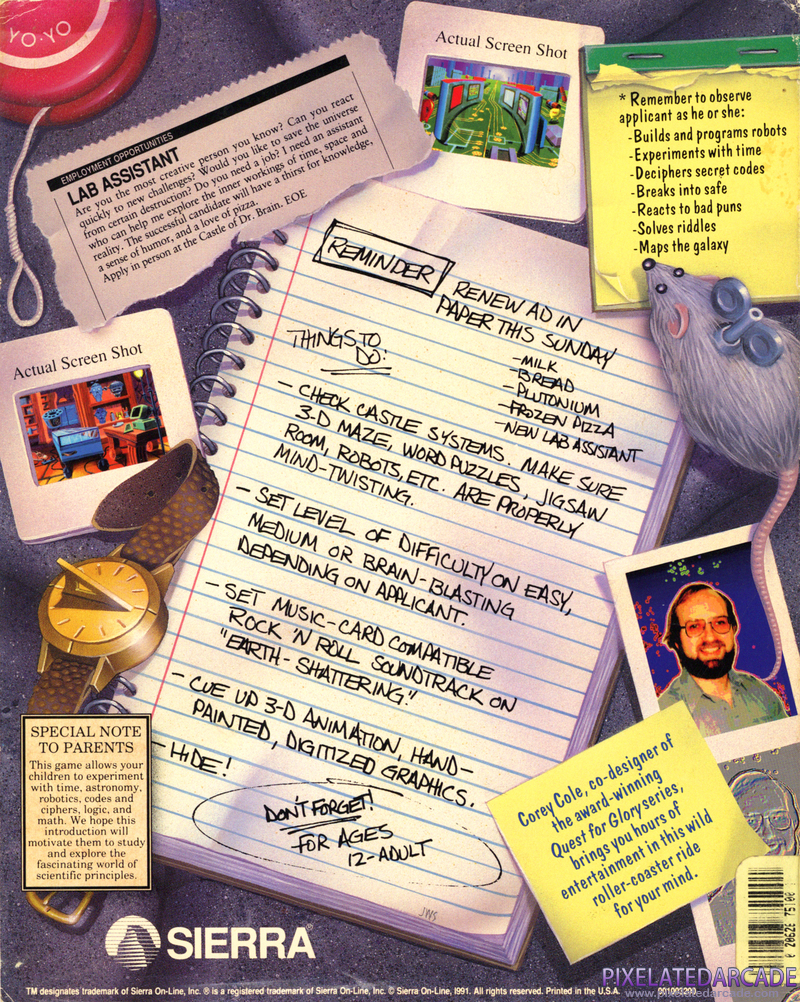 YO-YO
EMPLOYMENT OPPORTUNITIES
LAB ASSISTANT
Are you the most creative person you know? Can you react
quickly to new challenges? Would you like to save the universe
from certain destruction? Do you need a job? I need an assistant
who can help me explore the inner workings of time, space and
reality. The successful candidate will have a thirst for knowledge,
a sense of humor, and a love of pizza.
Apply in person at the Castle of Dr. Brain. EOE
Actual Screen Shot
* Remember to observe
applicant as he or she:
-Builds and programs robots
-Experiments with time
-Deciphers secret codes
-Breaks into safe
-Reacts to bad puns
-Solves riddles
-Maps the galaxy
Actual Screen Shot
REMINDER
RENEW AD IN
PAPER THIS SUNDAY
THINGS TO
DO:
-MILK
-BREAD
-PLUTONIUM
-FROZEN PIZZA
-NEW LAB ASSISTANT
- CHECK CASTLE SYSTEMS. MAKE SURE
3-D MAZE, WORD PUZZLES, JIGSAW
ROOM, ROBOTS, ETC. ARE PROPERLY
MIND-TWISTING.
- SET LEVEL OF DIFFICULTY ON EASY,
MEDIUM OR BRAIN-BLASTING
DEPENDING ON APPLICANT.
- SET MUSIC-CARD COMPATIBLE
ROCK 'N ROLL SOUNDTRACK ON
"EARTH-SHATTERING."
- CUE UP 3-D ANIMATION, HAND-
PAINTED, DIGITIZED GRAPHICS.
- HIDE!
DON'T FORGET!
FOR AGES
12-ADULT
JWS
SPECIAL NOTE
TO PARENTS
This game allows your
children to experiment
with time, astronomy,
robotics, codes and
ciphers, logic, and
math. We hope this
introduction will
motivate them to study
and explore the
fascinating world of
scientific principles.
Corey Cole, co-designer of
the award-winning
Quest for Glory series,
brings you hours of
entertainment in this wild
roller-coaster ride
for your mind.
SIERRA®
0 20626 75100
PIXELATEDARCADE
www.pixelatedarcade.com
TM designates trademark of Sierra On-Line, Inc. ® is a registered trademark of Sierra On-Line, Inc. © Sierra On-Line, 1991. All rights reserved. Printed in the U.S.A.